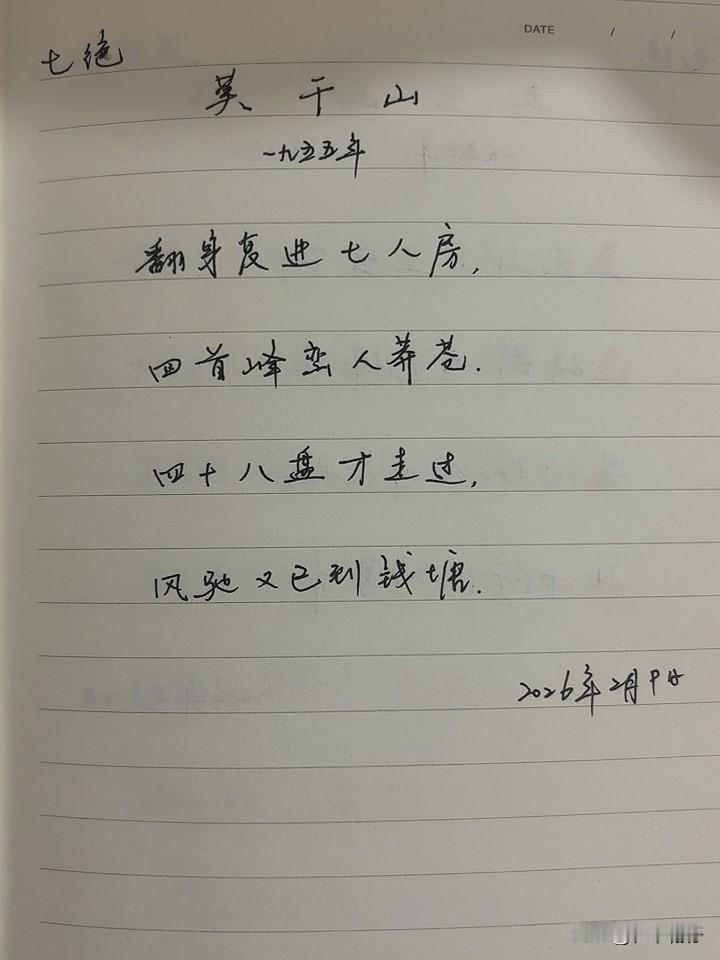 DATE / /
七绝
莫干山
一九五五年
翻身复进七人房,
四首峰峦人莽苍.
四十八盘才走过,
风驰又已到钱塘.
2026年2月9日